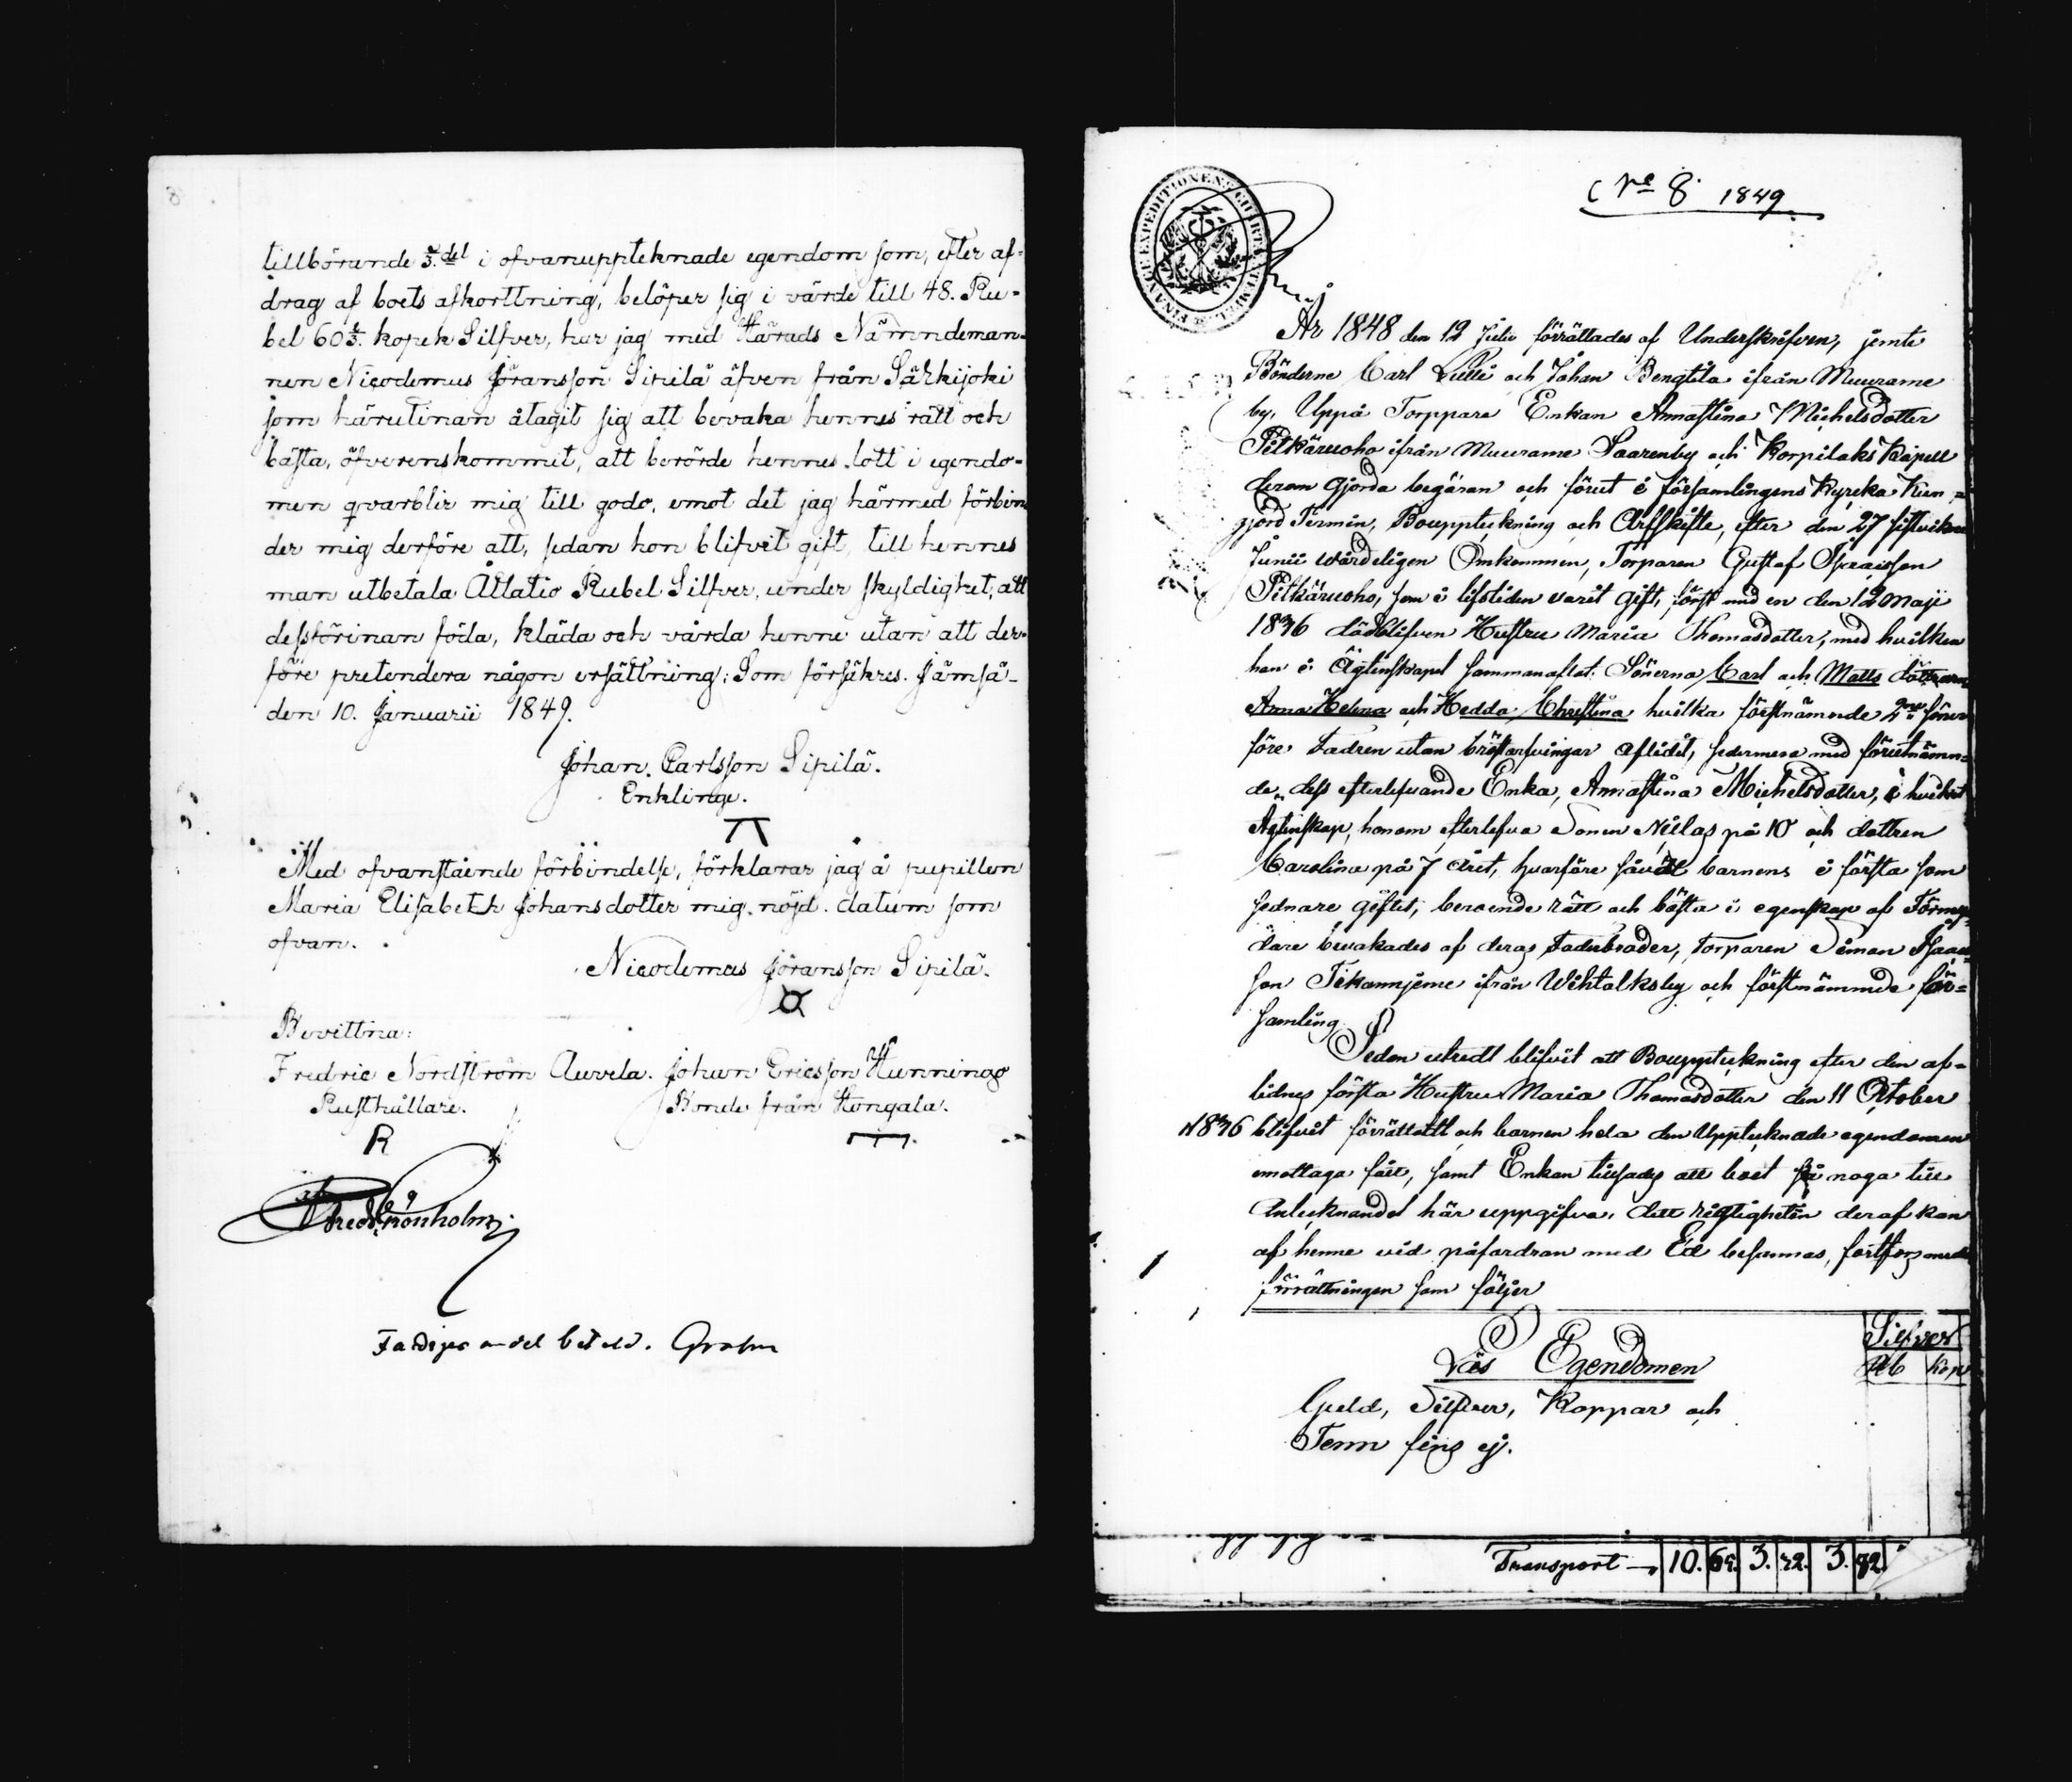 8
tillhörande ⅓.del i ofvanuppteknade egendom som, efter af-
drag af boets afkorttning, belöper sig i värde till 48. Ru-
bel 60⅔. kopek Silfver, har jag med Härads Nämndeman-
nen Nicodemus Jöransson Sipilä äfven från Särkijoki
som härutinnan åtagit sig att bevaka hennes rätt och
bästa, öfverenskommit, att berörde hennes lott i egendo-
men qvarblir mig till godo, emot det jag härmed förbin
der mig derföre att, sedan hon blifvit gift, till hennes
man utbetala Åttatio Rubel Silfver, under skyldighet, att
dessförinan föda, kläda och vårda henne utan att der-
före pretendera någon ersättning; Som försäkres. Jämsä
den 10. Januarii 1849.
Johan. Carlsson Sipilä.
Enklinge.
Med ofvanstående förbindelse, förklarar jag å pupillen
Maria Elisabeth Johansdotter mig nöjd. datum som
ofvan.
Nicodemus Jöransson Sipilä.
Bevittna:
Fredric Nordström Auvela. Johan Ericsson Hunninge
Rusthållare. Bonde från Kongala.
R
Fredr Grönholm
Fattiges andel betald. Grohm
No 8 1849
FINANCE EXPEDITIONENS CHARTÆ STEMPEL
År 1848 den 12 Julii förrättades af Underskrifven, jemte
Bönderne Carl Lulli och Johan Bengtila ifrån Muurame
by, Uppå Torppare Enkan Annastina Michelsdotter
Pitkäruoho ifrån Muurame Saarenby och Korpilaks Kapell
derom gjorda begäran och förut i församlingens Kyrcka Kun-
gjord Termin, Bouppteckning och Arfskifte, efter den 27 sistvikne
Junii wårdeligen Omkommen, Torparen Gustaf Isaacsson
Pitkäruoho, som i lifstiden varit gift, först med en den 12 Maji
1836 dödblifven Hustru Maria Thomasdotter, med hvilken
han i Ägtenskapet sammanaflat: Sönerna Carl och Matts döttrarne
Anna Helena och Hedda Christina hvilka förstnämnde 2ne söner
före Fadren utan bröstarfvingar aflidit, sedermera med förutnämn-
de, dess efterlefvande Enka, Annastina Michelsdotter, i hvilket
Agtenskap, honom efterlefva Sonen Niclas på 10 och dottren
Carolina på 7 Året, hvarföre såväl barnens i första som
sednare giftet, beroende rätt och bästa i egenskap af Förmyn-
dare bevakades af deras Faderbroder, Torparen Simon Isaacs-
son Tikannjeme ifrån Wihtalksby och förstnämnde för-
samling.
Sedan utredt blifvit att Bouppteckning efter den af-
lidnes första Hustru Maria Thomasdotter den 11 October
1836 blifvit förrättatt och barnen hela den Upptecknade egendomen
emottaga fått, samt Enkan tillsades att boet så noga till
Antecknandet här uppgifva, att rigtigheten deraf kan
af henne vid påfordran med Ed besannas, fortfors med
förrättningen som följer
Lös Egendomen
Silfver
Rub Kop
Guld, Silfver, Koppar och
Tenn fins ej.
Transport 10. 65. 3. 72. 3. 92.